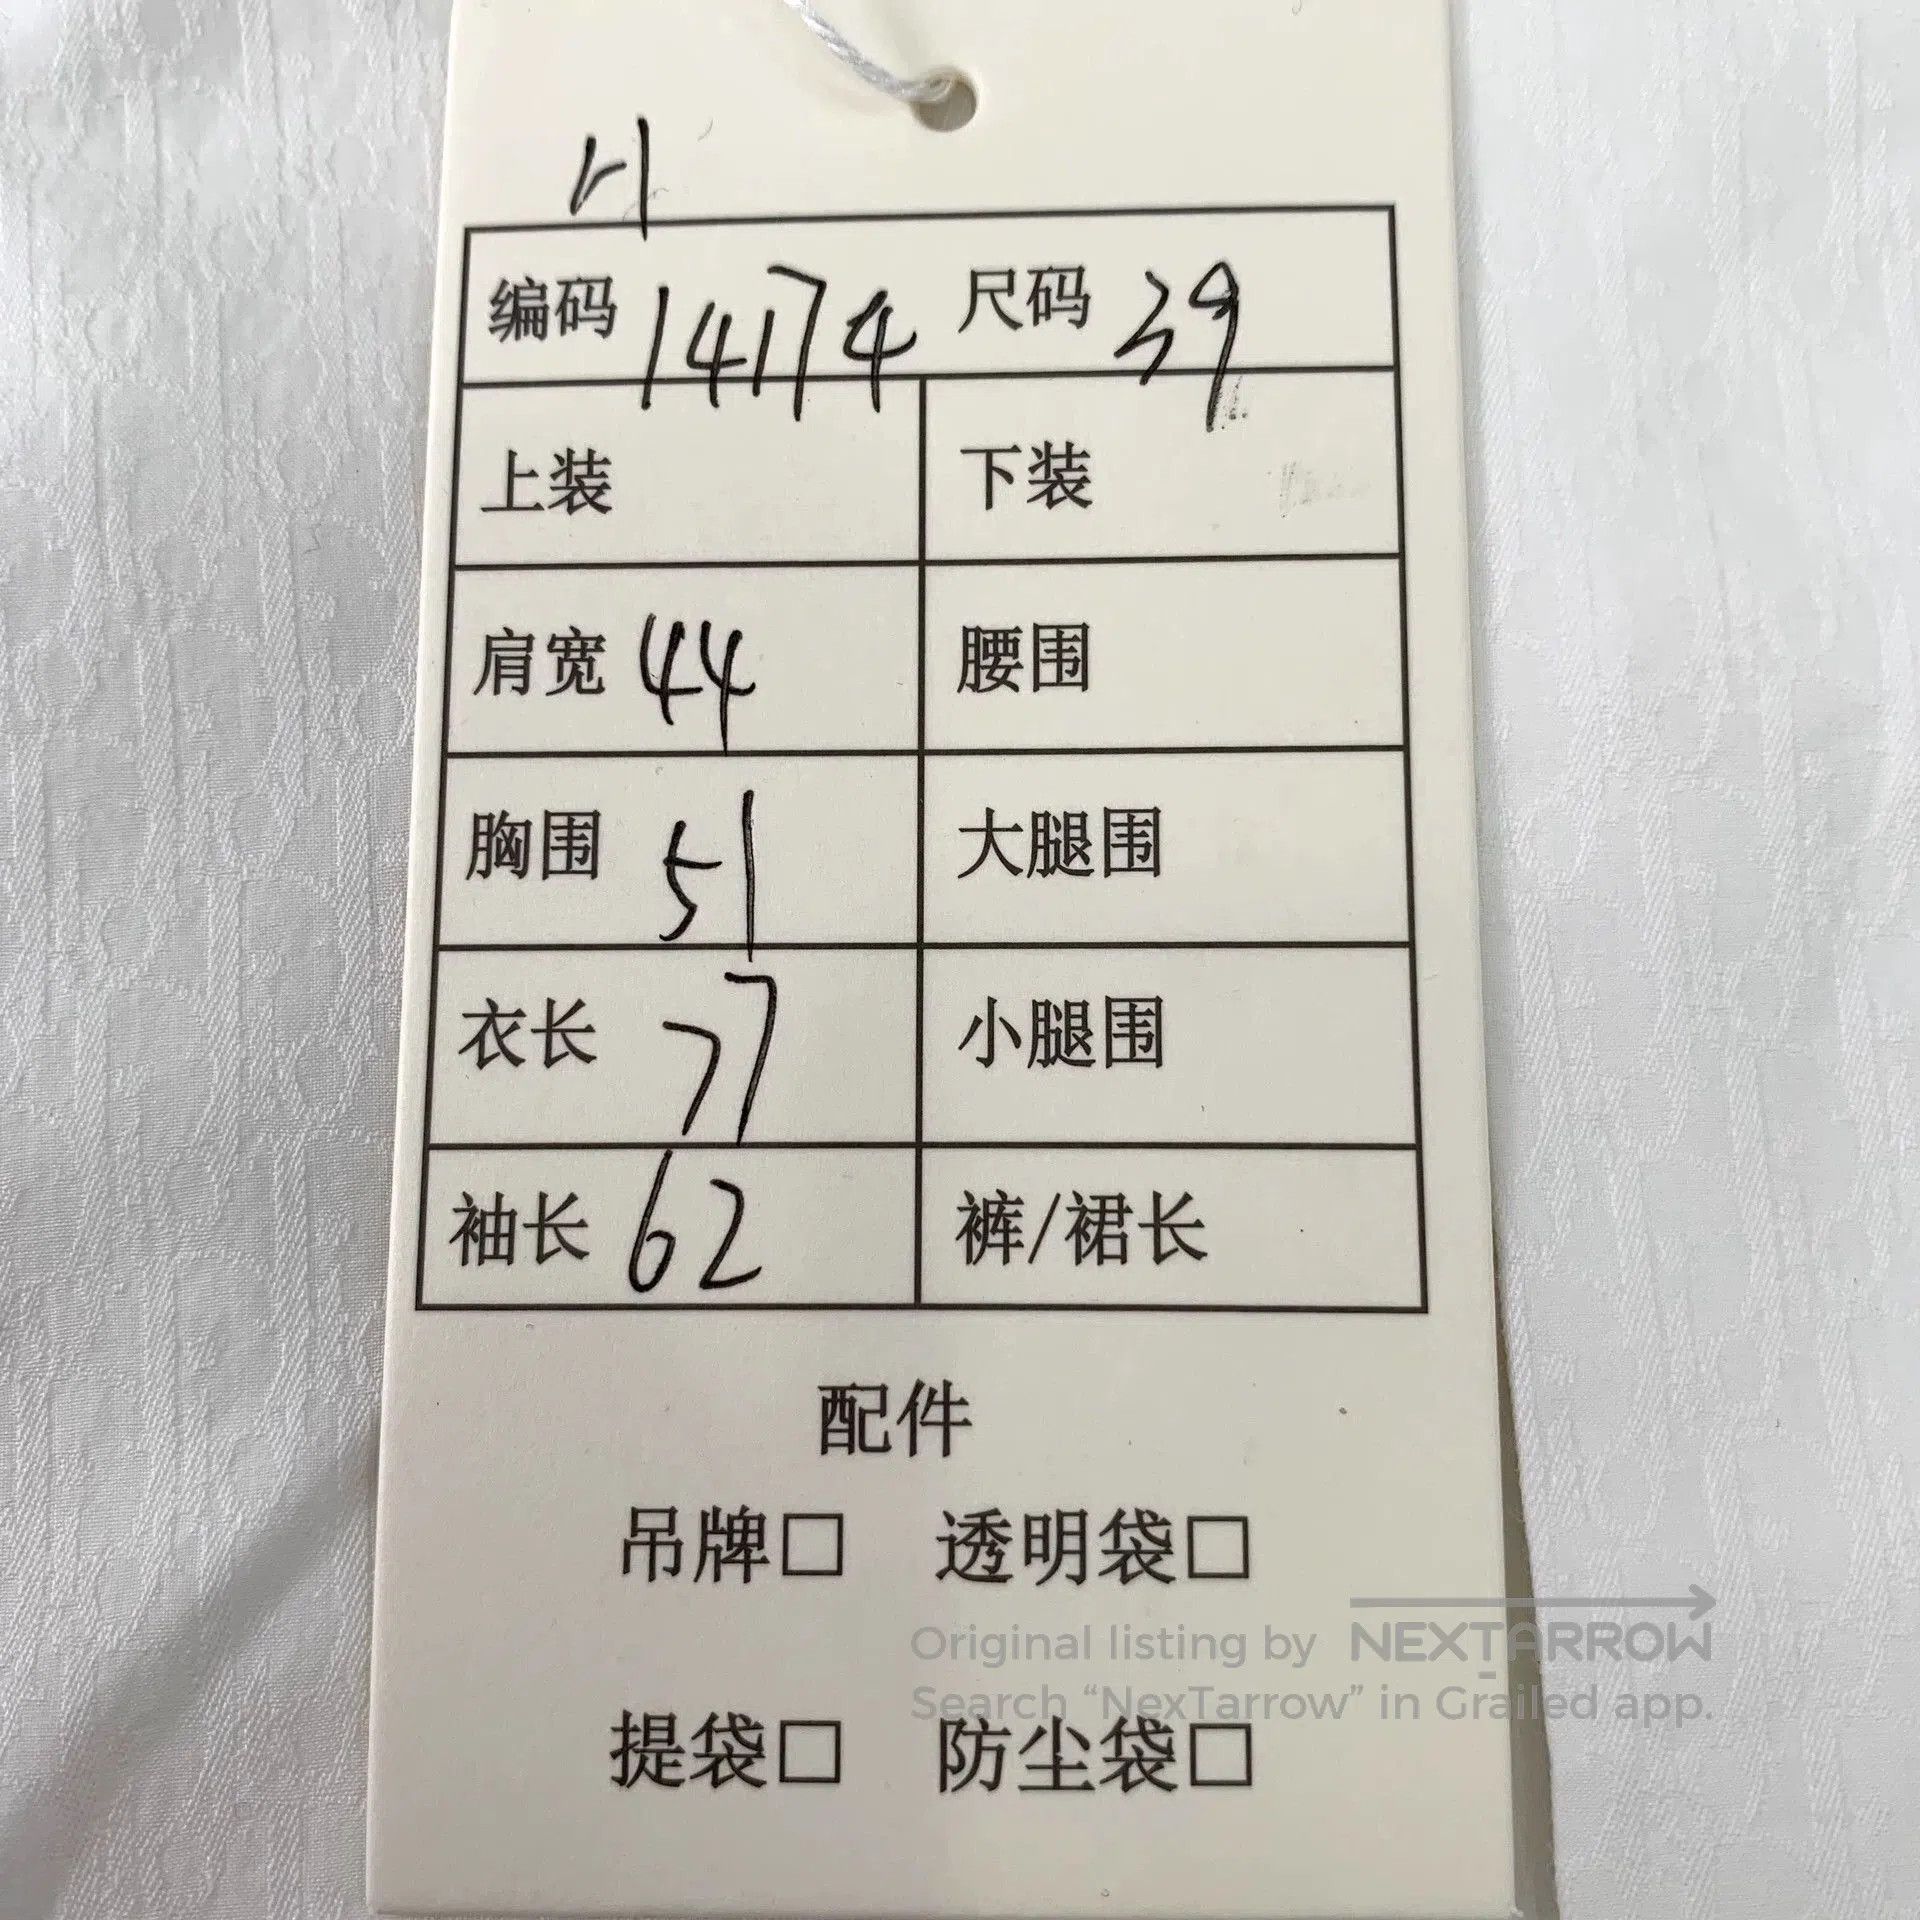 编码 14174 尺码 39
上装 下装
肩宽 44 腰围
胸围 51 大腿围
衣长 77 小腿围
袖长 62 裤/裙长
配件
吊牌□ 透明袋□
Original listing by NEXTARROW
Search “NexTarrow” in Grailed app.
提袋□ 防尘袋□